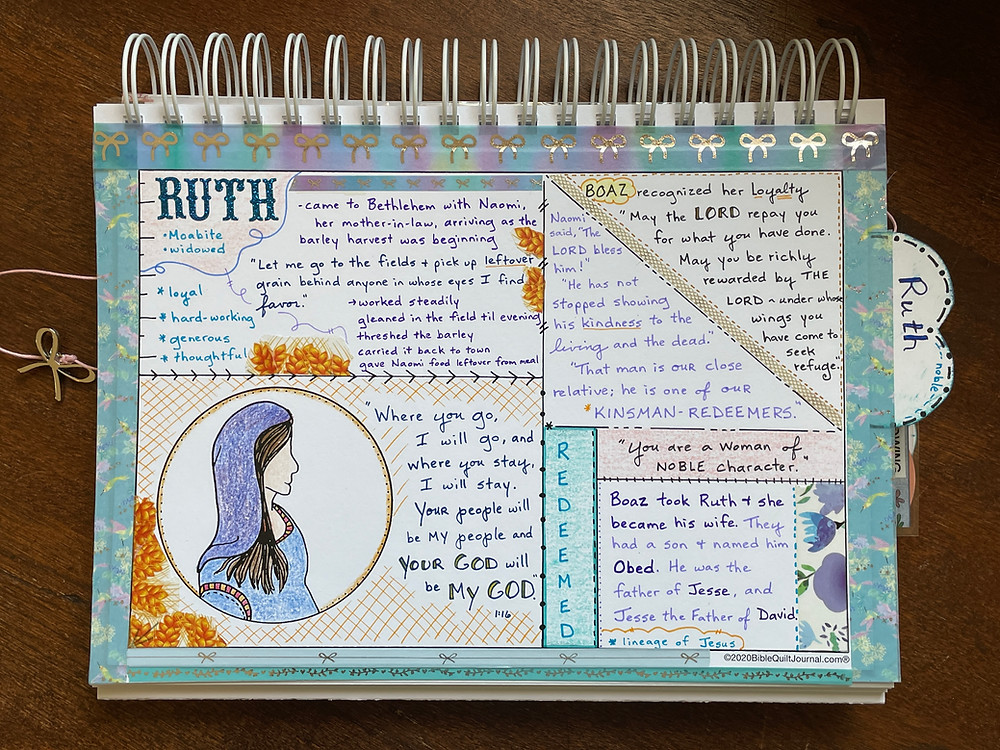 RUTH
•Moabite
•widowed
* loyal
* hard-working
* generous
* thoughtful
-came to Bethlehem with Naomi,
her mother-in-law, arriving as the
barley harvest was beginning
"Let me go to the fields + pick up leftover
grain behind anyone in whose eyes I find
favor."
→worked steadily
gleaned in the field til evening
threshed the barley
carried it back to town
gave Naomi food leftover from meal
"Where you go,
I will go, and
where you stay,
I will stay.
Your people will
be MY people and
YOUR GOD will
be My GOD."
1:16
BOAZ recognized her Loyalty
"May the LORD repay you
for what you have done.
May you be richly
rewarded by THE
LORD ~ under whose
wings you
have come to
seek
refuge."
Naomi
said, "The
LORD bless
him!"
"He has not
stopped showing
his kindness to the
living and the dead."
"That man is our close
relative; he is one of our
*KINSMAN-REDEEMERS."
*
REDEEMED
"You are a woman of
NOBLE character."
Boaz took Ruth + she
became his wife. They
had a son + named him
Obed. He was the
father of Jesse, and
Jesse the Father of David.
* lineage of Jesus
©2020BibleQuiltJournal.com®
Ruth
noble